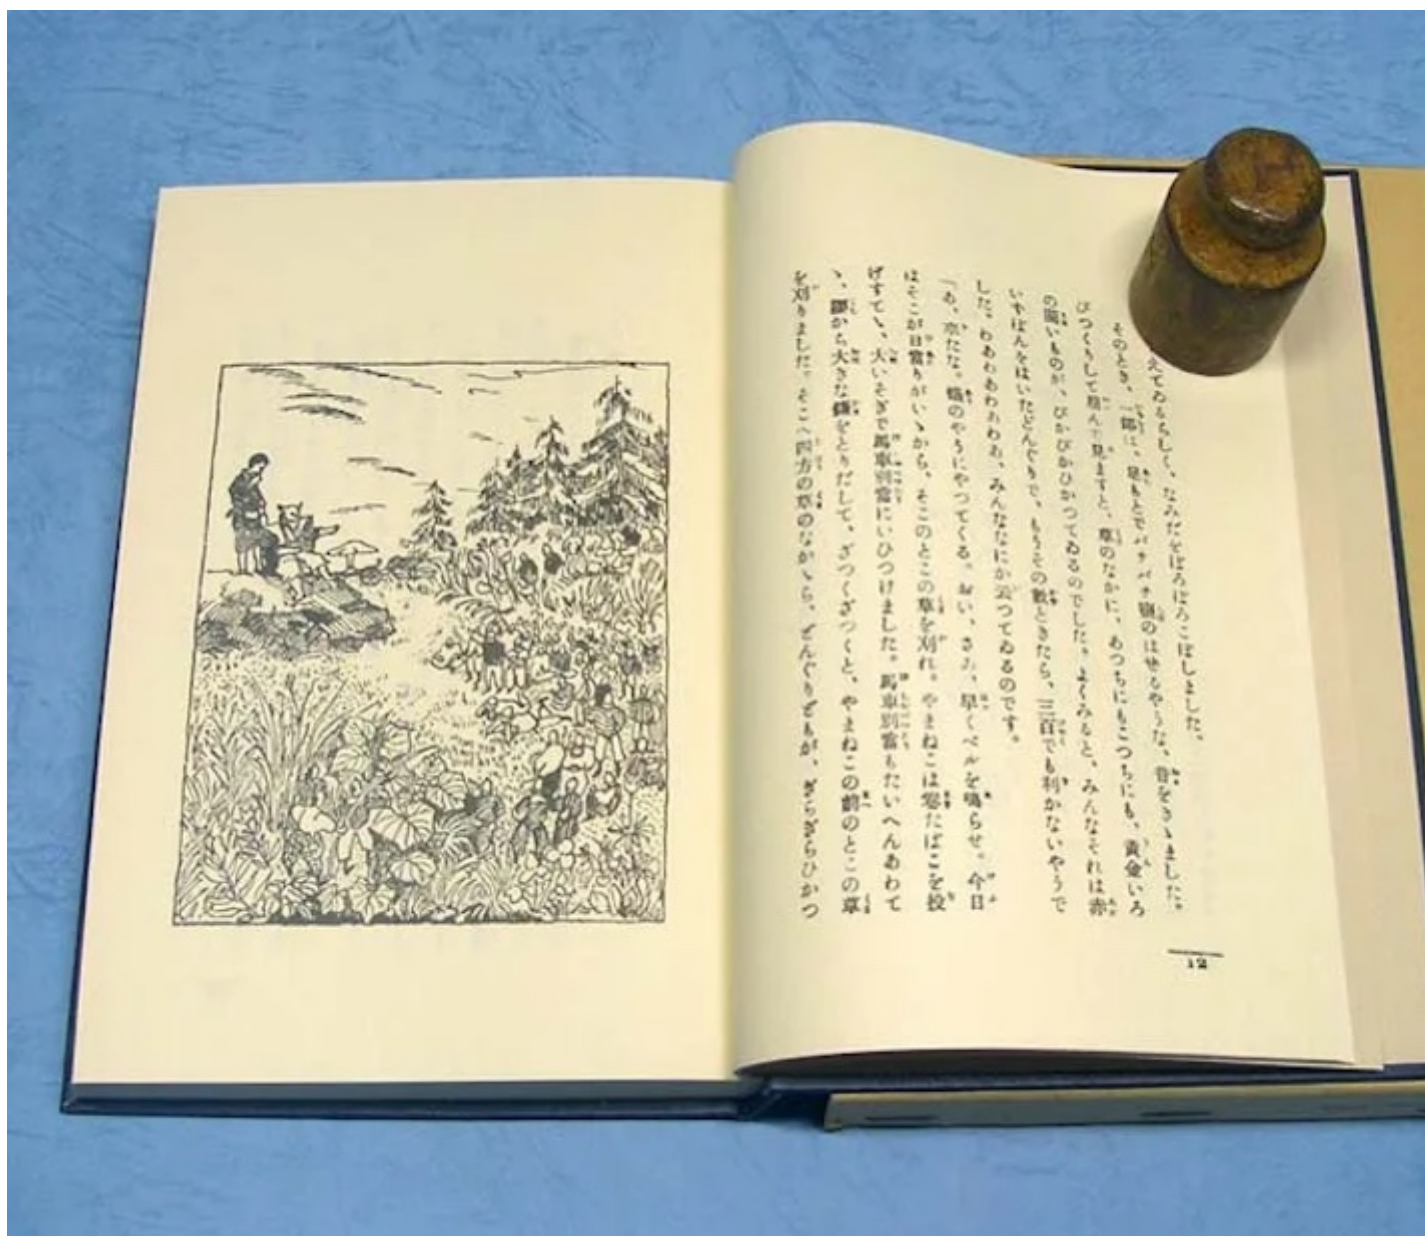 えてゐるらしく、なみだをぼろぼろこぼしました。
そのとき、一郎は、足もとでパチパチ塩のはぜるやうな、音をきゝました。
びつくりして屈んで見ますと、草のなかに、あつちにもこつちにも、黄金いろ
の円いものが、ぴかぴかひかつてゐるのでした。よくみると、みんなそれは赤
いずぼんをはいたどんぐりで、もうその数ときたら、三百でも利かないやうで
した。わあわあわあわあ、みんななにか云つてゐるのです。
「あ、来たな。蟻のやうにやつてくる。おい、さあ、早くベルを鳴らせ。今日
はそこが日當りがいゝから、そこのとこの草を刈れ。やまねこは巻たばこを投
げすてゝ、大いそぎで馬車別當にいひつけました。馬車別當もたいへんあわて
ゝ、腰から大きな鎌をとりだして、ざつくざつくと、やまねこの前のとこの草
を刈りました。そこへ四方の草のなかゝら、どんぐりどもが、ぎらぎらひかつ
12